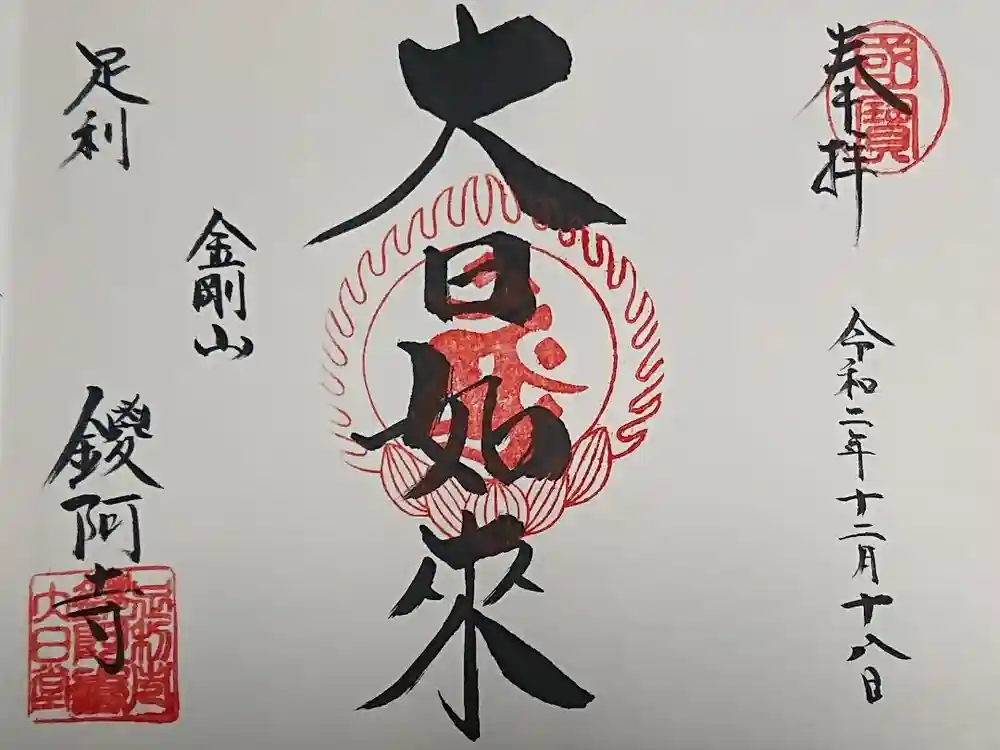 奉拝
國寳
令和二年十二月十八日
大日如来
金剛山
足利
鑁阿寺
大日堂